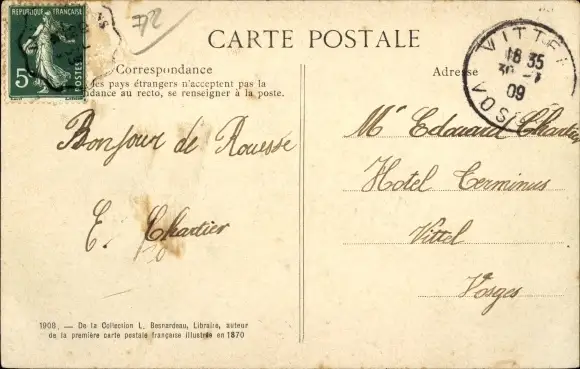 RÉPUBLIQUE FRANÇAISE
POSTES
5c
72
CARTE POSTALE
Correspondance
les pays étrangers n'acceptent pas la
dance au recto, se renseigner à la poste.
Bonjour de Rouessé
E. Chartier
1908. — De la Collection L. Besnardeau, Libraire, auteur
de la première carte postale française illustrée en 1870
Adresse
VITTEL
18 35
30
09
VOSGES
Mr Edouard Chartier
Hotel Terminus
Vittel
Vosges